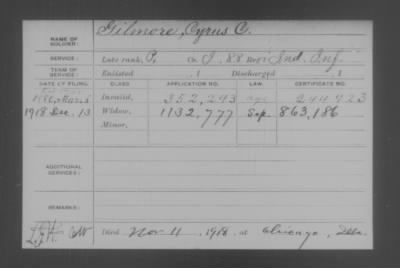 NAME OF SOLDIER: Gilmore, Cyrus C.
SERVICE: Late rank, P, Co. I, 88 Reg't Ind. Inf.
TERM OF SERVICE: Enlisted , 1 Discharged , 1
DATE OF FILING. CLASS. APPLICATION NO. LAW. CERTIFICATE NO.
1880, Mar. 5 Invalid, 352,293
1918 Dec. 13 Widow, 1132,777 Sep. 863,186
Minor,
ADDITIONAL SERVICES:
REMARKS:
Died Nov 11, 1918, at Chicago, Ills.